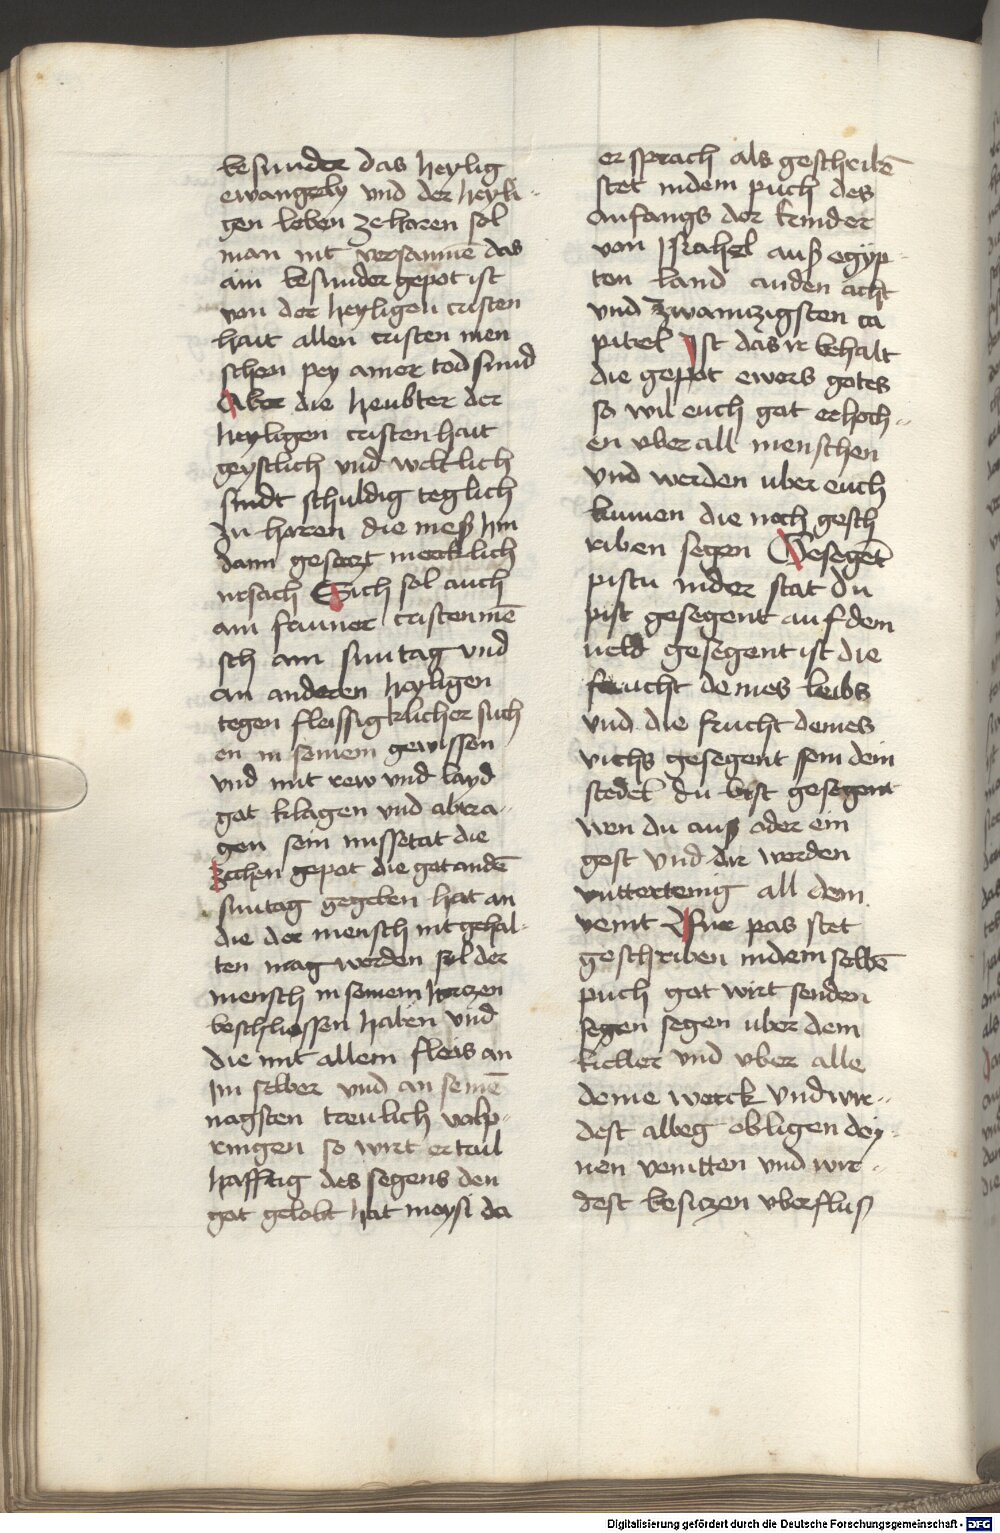 besunder das heylig
ewangely vnd der heyli-
gen leben ze horen sol
man nit versaumē das
ain besunder gepot ist
von der heyligen cristen
hait allen cristen men
schen pey ainer tod sund
Aber die heubter der
heyligen cristenhait
geystlich vnd weltlich
sindt schuldig teglich
zu horen die meß hin
dann gesaczt mercklich
vrsach Sich sol auch
ain frumer cristenmē
sch am suntag vnd
an anderen heyligen
tegen fleissigklicher such
en in seinem gewissen
vnd mit rew vnd layd
got klagen vnd abtra-
gen sein missetat die
zechen gepot die got andē
suntag gegeben hat an
die der mensch nit gehal-
ten mag werden sol der
mensch in seinem herczen
beschliessen haben vnd
die mit allem fleis an
Im selber vnd an seinē
nagsten treulich volp-
ringen so wirt er tail
hafftig des segens den
got gelobt hat moysi da
er sprach als geschribē
stet indem puch des
anfangs der kinder
von Israhel auß egÿp-
ten land anden acht
vnd zwainzigsten ca
pitel Ist das ir behalt
die gepot ewers gotes
so wil euch got erhoch-
en vber all menschen
vnd werden uber euch
kumen die noch gesch
riben segen Gesegēt
pistu inder stat du
pist gesegent auf dem
ueld gesegent ist die
frucht deines leibs
vnd die frucht deines
vichs gesegent sein dein
stedel du bist gesegent
wen du auß oder ein
gest vnd dir werden
vnttertenig all dein
veint Fur pas stet
geschriben indem selbē
puch got wirt senden
segen segen uber dein
keller vnd vber alle
deine werck vnd wir-
dest albeg obligen dey-
nen veintten vnd wir-
dest besiczen vberfluß
Digitalisierung gefördert durch die Deutsche Forschungsgemeinschaft - DFG